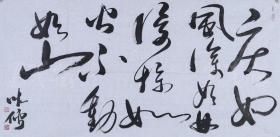 疾如
風徐如林
侵掠如
火不動
如山